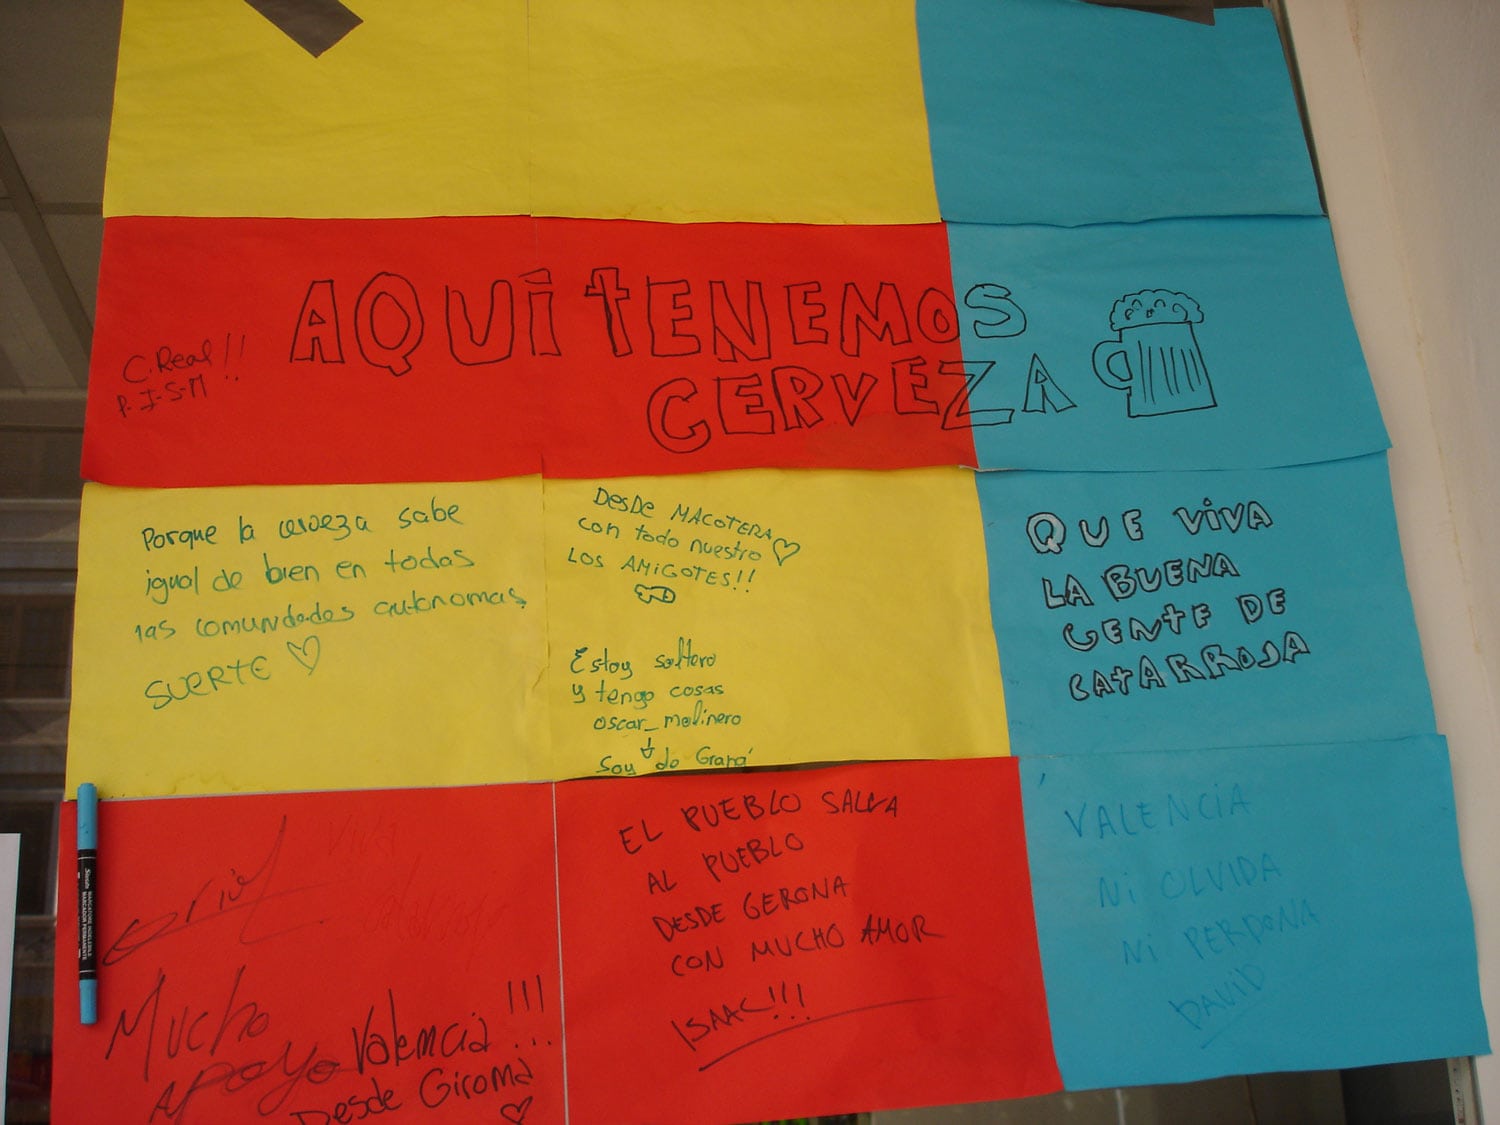 AQUÍ TENEMOS
CERVEZA
C. Real!!
P. I-S-M
Porque la cerveza sabe
igual de bien en todas
las comunidades autonomas,
SUERTE
DESDE MACOTERA
con todo nuestro
LOS AMIGOTES!!
Estoy soltero
y tengo cosas
oscar_molinero
Soy de Graná
QUE VIVA
LA BUENA
GENTE DE
CATARROJA
Viva
Catarroja
Mucho
APOYO Valencia!!!
Desde Girona
EL PUEBLO SALVA
AL PUEBLO
DESDE GERONA
CON MUCHO AMOR
ISAAC!!!
VALENCIA
Ni OLVIDA
Ni PERDONA
DAVID
MARCADOR PERMANENTE